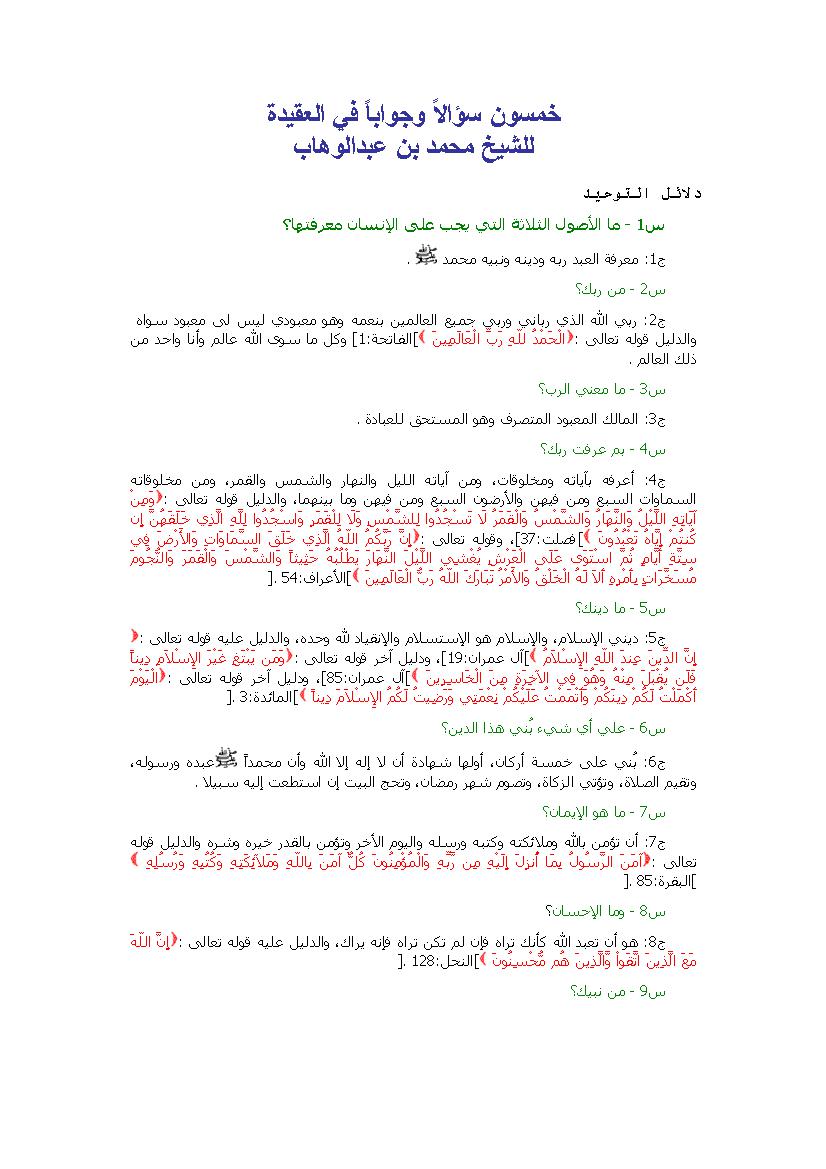 خمسون سؤالاً وجواباً في العقيدة
للشيخ محمد بن عبدالوهاب
دلائل التوحيد
س1 - ما الأصول الثلاثة التي يجب على الإنسان معرفتها؟
ج1: معرفة العبد ربه ودينه ونبيه محمد ﷺ .
س2 - من ربك؟
ج2: ربي الله الذي رباني وربي جميع العالمين بنعمه وهو معبودي ليس لى معبود سواه
والدليل قوله تعالى :﴿الْحَمْدُ للّهِ رَبِّ الْعَالَمِينَ ﴾]الفاتحة:1] وكل ما سوى الله عالم وأنا واحد من
ذلك العالم .
س3 - ما معني الرب؟
ج3: المالك المعبود المتصرف وهو المستحق للعبادة .
س4 - بم عرفت ربك؟
ج4: أعرفه بآياته ومخلوقات، ومن آياته الليل والنهار والشمس والقمر، ومن مخلوقاته
السماوات السبع ومن فيهن والأرضون السبع ومن فيهن وما بينهما، والدليل قوله تعالى :﴿وَمِنْ
آيَاتِهِ اللَّيْلُ وَالنَّهَارُ وَالشَّمْسُ وَالْقَمَرُ لَا تَسْجُدُوا لِلشَّمْسِ وَلَا لِلْقَمَرِ وَاسْجُدُوا لِلَّهِ الَّذِي خَلَقَهُنَّ إِن
كُنتُمْ إِيَّاهُ تَعْبُدُونَ ﴾]فصلت:37]، وقوله تعالى :﴿إِنَّ رَبَّكُمُ اللّهُ الَّذِي خَلَقَ السَّمَاوَاتِ وَالأَرْضَ فِي
سِتَّةِ أَيَّامٍ ثُمَّ اسْتَوَى عَلَى الْعَرْشِ يُغْشِي اللَّيْلَ النَّهَارَ يَطْلُبُهُ حَثِيثاً وَالشَّمْسَ وَالْقَمَرَ وَالنُّجُومَ
مُسَخَّرَاتٍ بِأَمْرِهِ أَلاَ لَهُ الْخَلْقُ وَالأَمْرُ تَبَارَكَ اللّهُ رَبُّ الْعَالَمِينَ ﴾]الأعراف:54 .[
س5 - ما دينك؟
ج5: ديني الإسلام، والإسلام هو الإستسلام والإنقياد لله وحده، والدليل عليه قوله تعالى :﴿
إِنَّ الدِّينَ عِندَ اللّهِ الإِسْلاَمُ ﴾]آل عمران:19]، ودليل آخر قوله تعالى :﴿وَمَن يَبْتَغِ غَيْرَ الإِسْلاَمِ دِيناً
فَلَن يُقْبَلَ مِنْهُ وَهُوَ فِي الآخِرَةِ مِنَ الْخَاسِرِينَ ﴾]آل عمران:85]، ودليل آخر قوله تعالى :﴿الْيَوْمَ
أَكْمَلْتُ لَكُمْ دِينَكُمْ وَأَتْمَمْتُ عَلَيْكُمْ نِعْمَتِي وَرَضِيتُ لَكُمُ الإِسْلاَمَ دِيناً ﴾]المائدة:3 .[
س6 - علي أي شيء بُني هذا الدين؟
ج6: بُني على خمسة أركان، أولها شهادة أن لا إله إلا الله وأن محمداً ﷺعبده ورسوله،
وتقيم الصلاة، وتؤتي الزكاة، وتصوم شهر رمضان، وتحج البيت إن استطعت إليه سبيلا .
س7 - ما هو الإيمان؟
ج7: أن تؤمن بالله وملائكته وكتبه ورسله واليوم الأخر وتؤمن بالقدر خيره وشره والدليل قوله
تعالى :﴿آمَنَ الرَّسُولُ بِمَا أُنزِلَ إِلَيْهِ مِن رَّبِّهِ وَالْمُؤْمِنُونَ كُلٌّ آمَنَ بِاللّهِ وَمَلآئِكَتِهِ وَكُتُبِهِ وَرُسُلِهِ ﴾
]البقرة:85 .[
س8 - وما الإحسان؟
ج8: هو أن تعبد الله كأنك تراه فإن لم تكن تراه فإنه يراك، والدليل عليه قوله تعالى :﴿إِنَّ اللّهَ
مَعَ الَّذِينَ اتَّقَواْ وَّالَّذِينَ هُم مُّحْسِنُونَ ﴾]النحل:128 .[
س9 - من نبيك؟